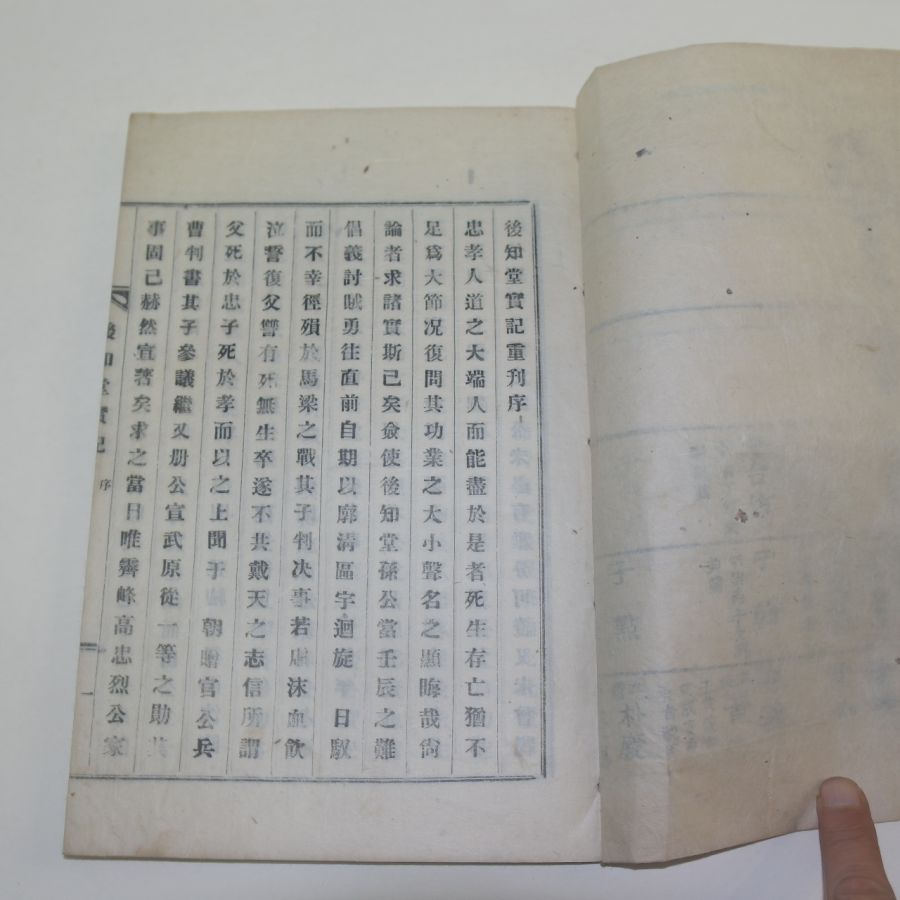 後知堂實記重刊序
忠孝人道之大端人而能盡於是者死生存亡猶不
足爲大節况復問其功業之大小聲名之顯晦哉尙
論者求諸實斯已矣僉使後知堂孫公當壬辰之難
倡義討賊勇往直前自期以廓淸區宇迴旋日馭
而不幸徑殞於馬梁之戰其子判决事若虛沫血飮
泣誓復父讐有死無生卒遂不共戴天之志信所謂
父死於忠子死於孝而以之上聞于朝贈官公兵
曹判書其子參議繼又册公宣武原從一等之勛其
事固已赫然宣著矣求之當日唯霽峰高忠烈公家
後知堂實記 序 一